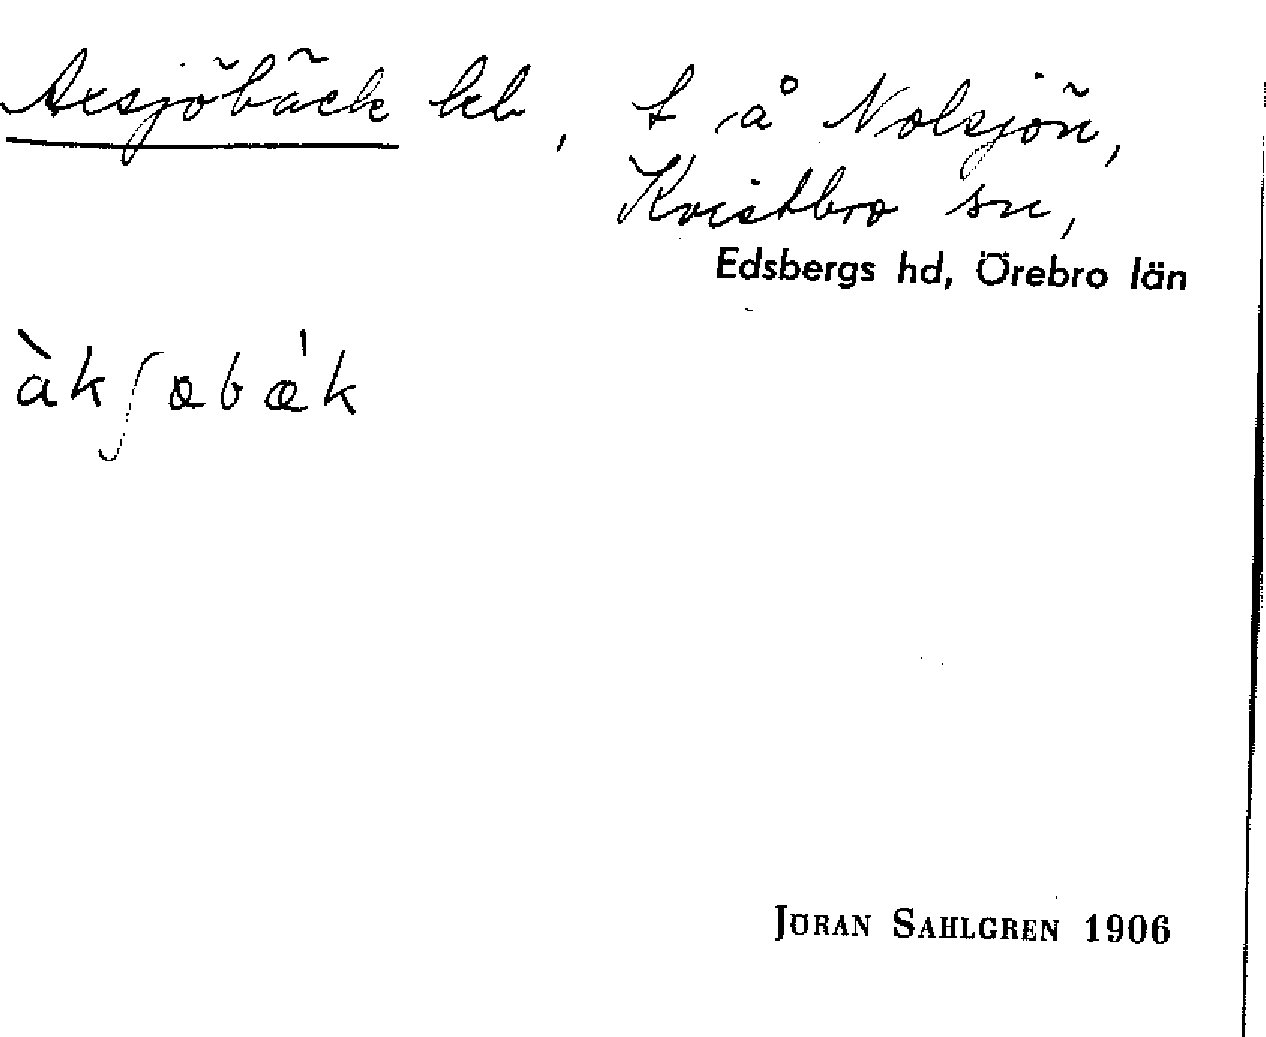 Axsjöbäck lkb, t å Nolsjön,
Kvistbro sn,
Edsbergs hd, Örebro län
àkʃæbæ̍k
JÖRAN SAHLGREN 1906